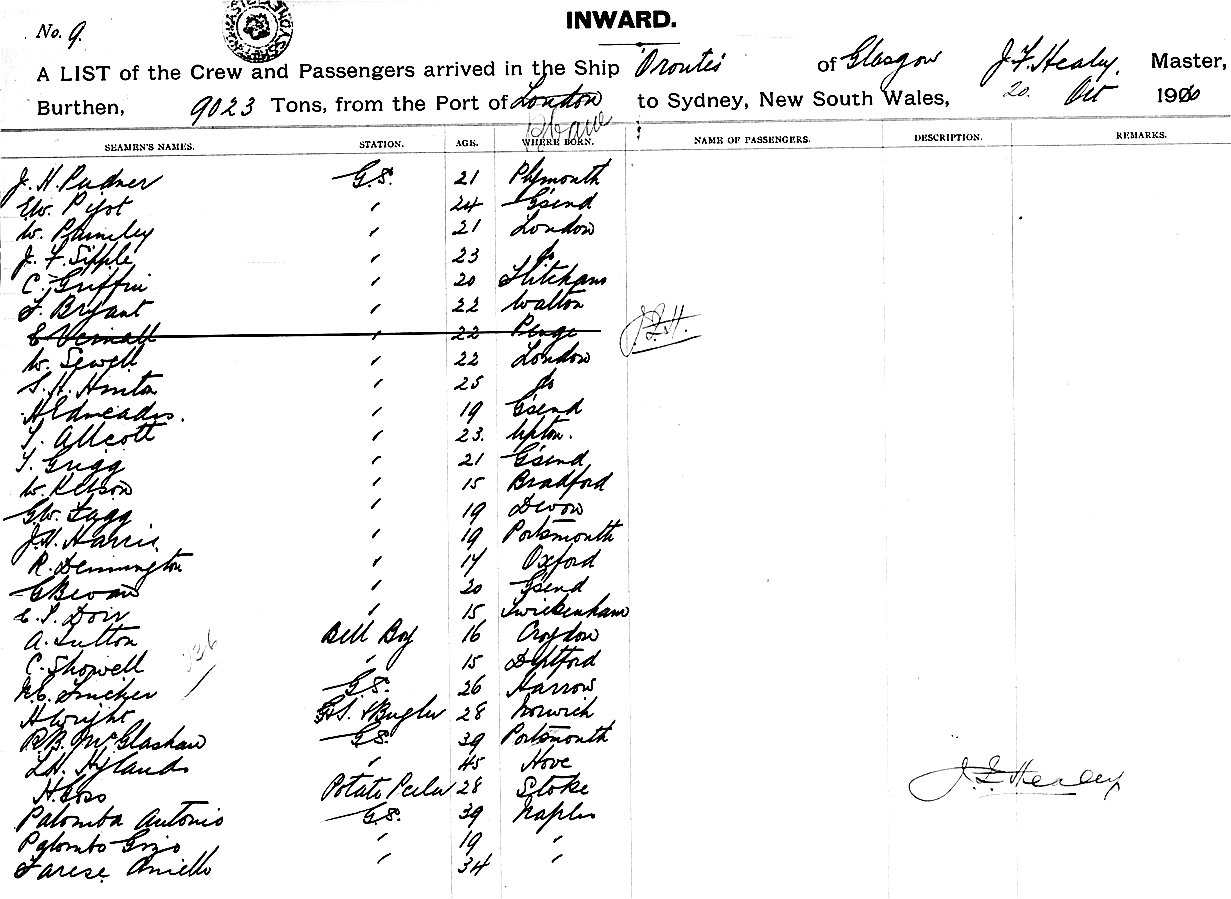 No. 9.
INWARD.
A LIST of the Crew and Passengers arrived in the Ship Orontes of Glasgow J.F. Healy. Master,
Burthen, 9023 Tons, from the Port of London to Sydney, New South Wales, 20. Oct 1900
SEAMEN'S NAMES. STATION. AGE. WHERE BORN. NAME OF PASSENGERS. DESCRIPTION. REMARKS.
J. H. Pudner G.S. 21 Plymouth
EW. Pyot " 24 G'send
W. Plumley " 21 London
J. F. Sipple " 23 do
C. Griffin " 20 Hitcham
F. Bryant " 22 Walton
E Vernall " 22 Penge J.F.H.
W. Sewell " 22 London
S. H. Hinton " 25 do
H Edmeades. " 19 G'send
T. Allcott " 23. Upton.
T. Grigg " 21 G'send
W. Kelson " 15 Bradford
GW. Fagg " 19 Devon
J.H. Harris " 19 Portsmouth
R. Dennington " 17 Oxford
G Bevan " 20 Gsend
E. P. Dorr " 15 Twickenham
A. Sutton Bell Boy 16 Croydon
C. Showell " 15 Deptford
Tucker G.S. 26 Harrow
H Wright G.S. & Bugler 28 Norwich
R.B. McGlashan G.S. 39 Portsmouth
L.H. Hylands " 45 Hove
H. Coss Potato Peeler 28 Stoke
J.F. Healey
Palomba Antonio G.S. 39 Naples
Palombo Gizo " 19 "
Farese Aniello " 34 "